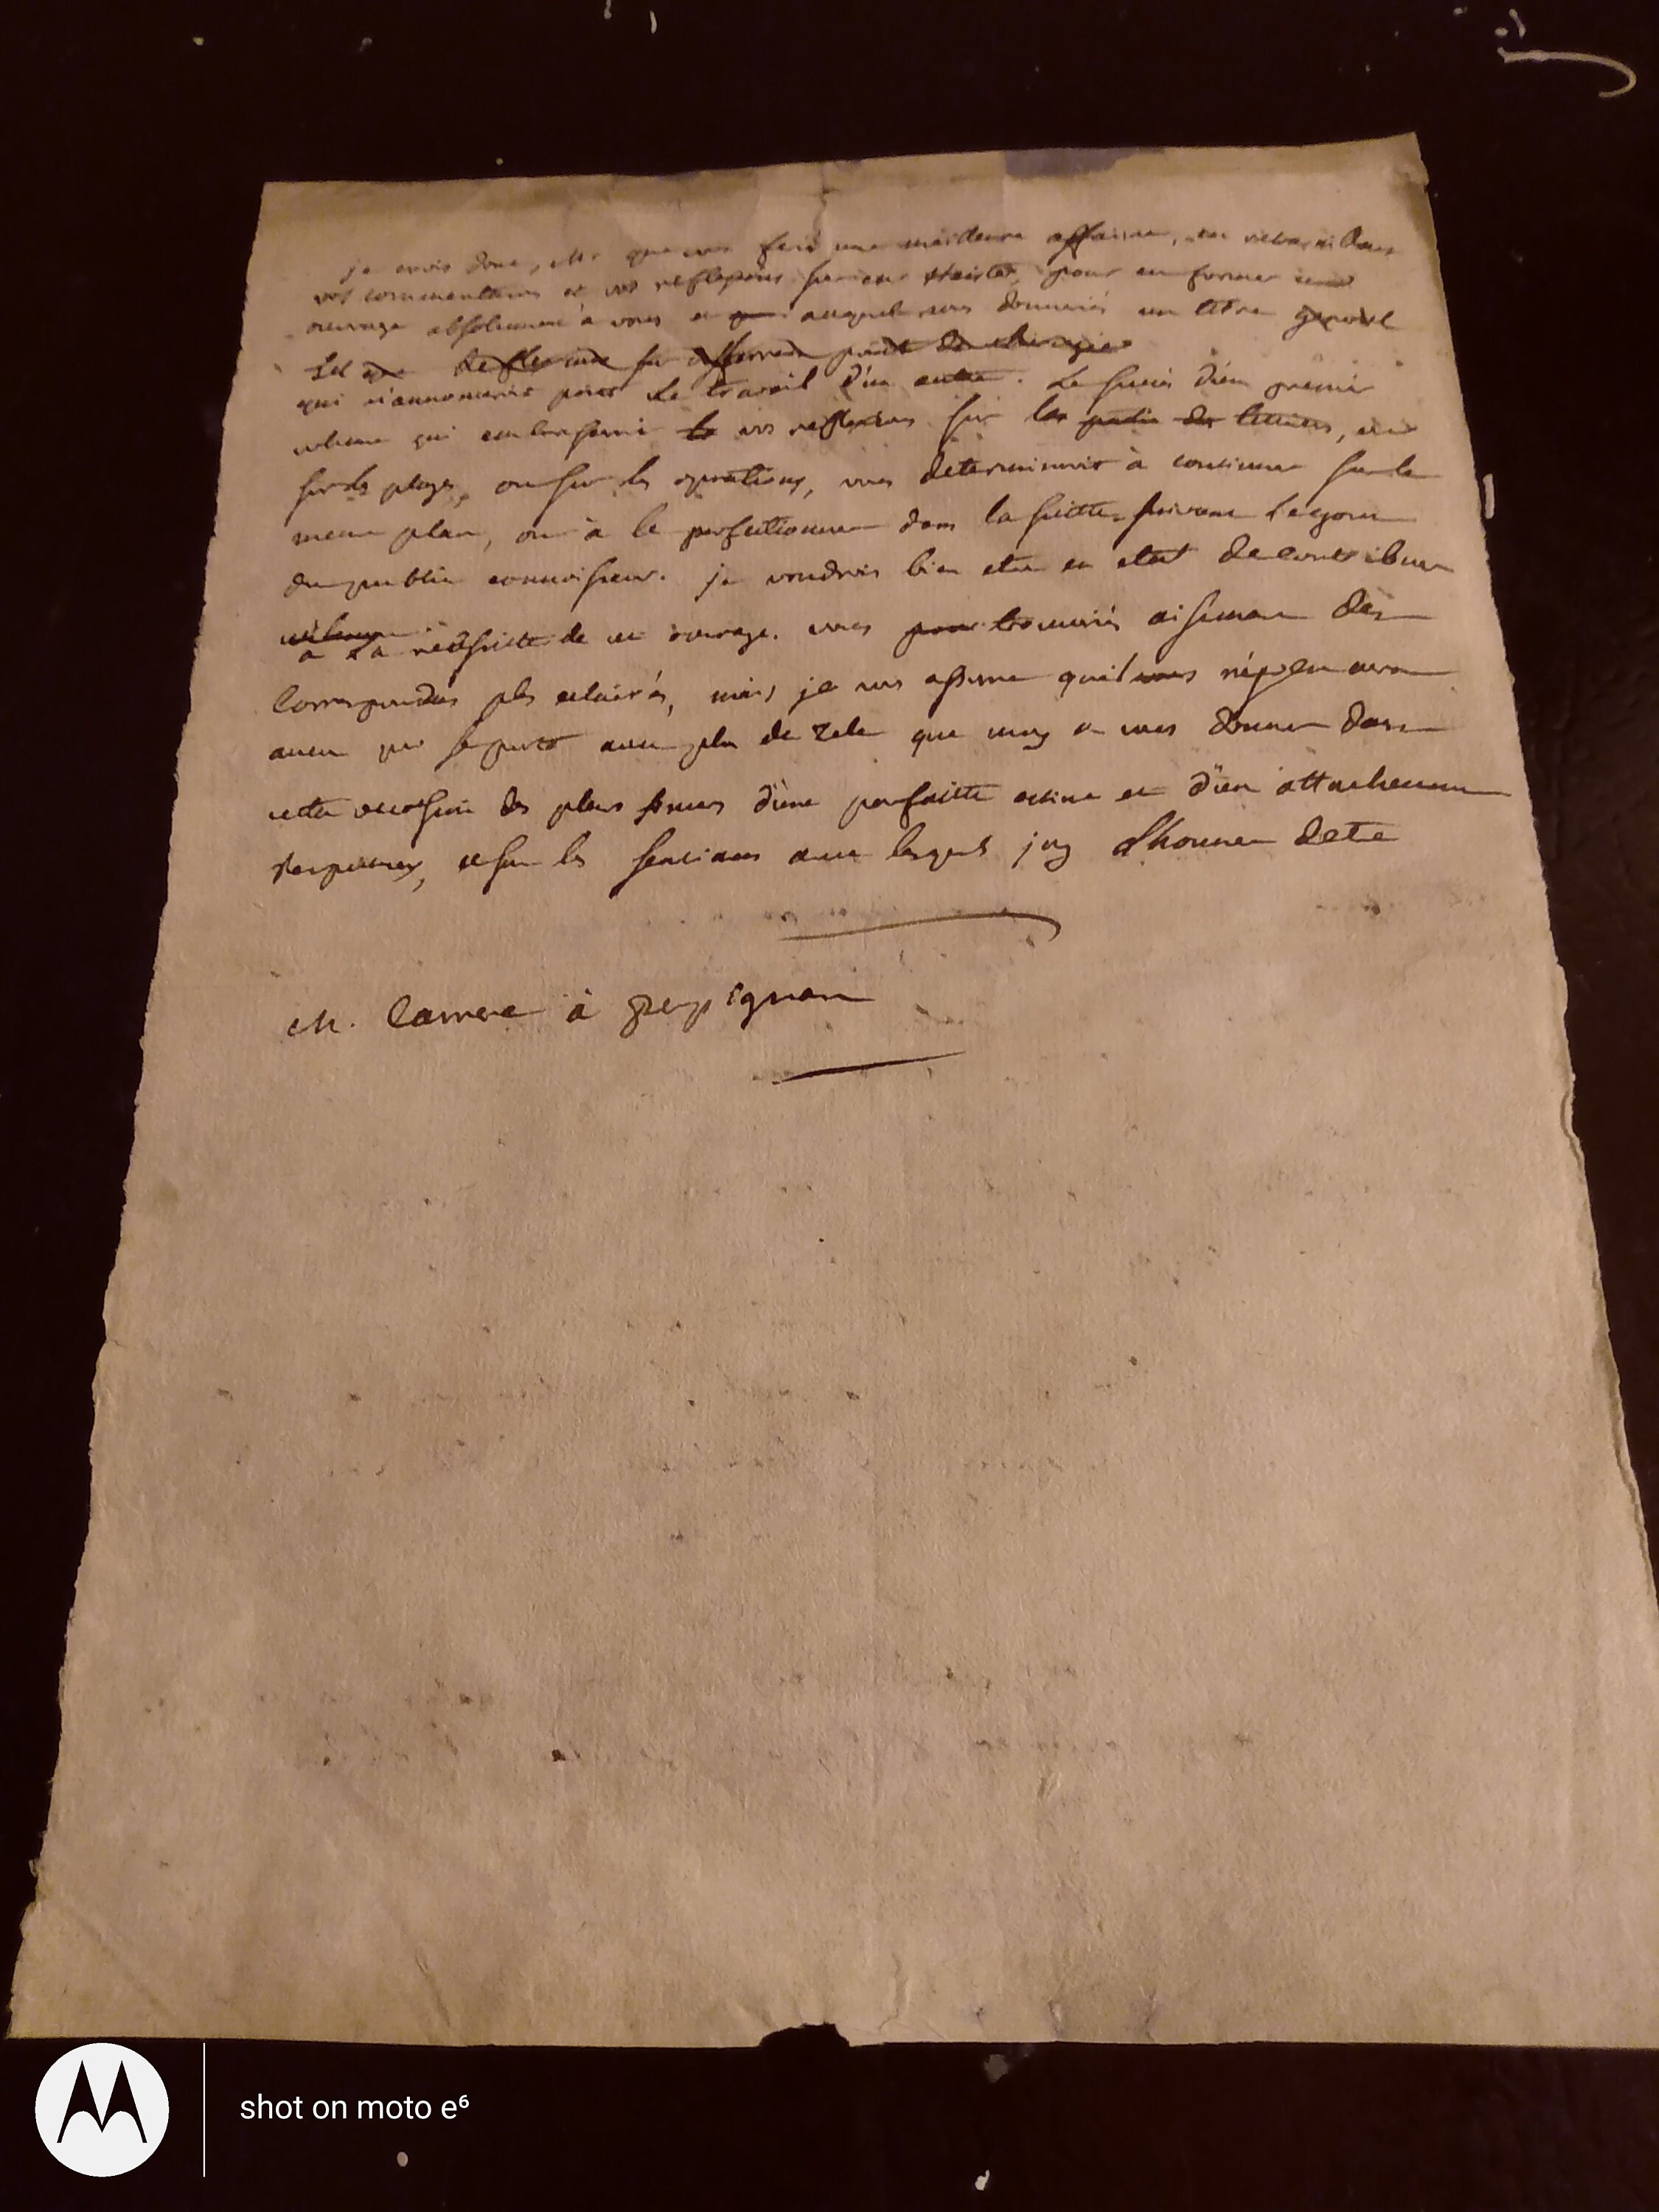 je crois donc, Mr que vous feriés une meilleure affaire, en retravaillant
vos commentaires et vos reflexions sur heister, pour en former un
ouvrage absolument à vous et auquel vous donneriés un titre general
tel que Reflexions sur differents points de chirurgie
qui n'annonceroit point le travail d'un autre. Le succès d'un premier
volume qui embrasseroit vos reflexions sur les, ou
sur les playes, ou sur les operations, vous determineroit à continuer sur le
meme plan, ou à le perfectionner dans la suitte suivant le gout
du public connoisseur. je voudrois bien etre en etat de contribuer
à la reüssitte de cet ouvrage. vous trouveriés aisement des
Correspondans plus eclairés, mais je vous assure qu'il n'y en aura
aucun qui se porte avec plus de zele que moy a vous donner dans
cette occasion des plus d'une parfaitte estime et d'un attachement
respectueux, ce sont les sentimens avec lesquels j'ay d'honneur d'etre
M. Carrere à Perpignan
shot on moto e⁶